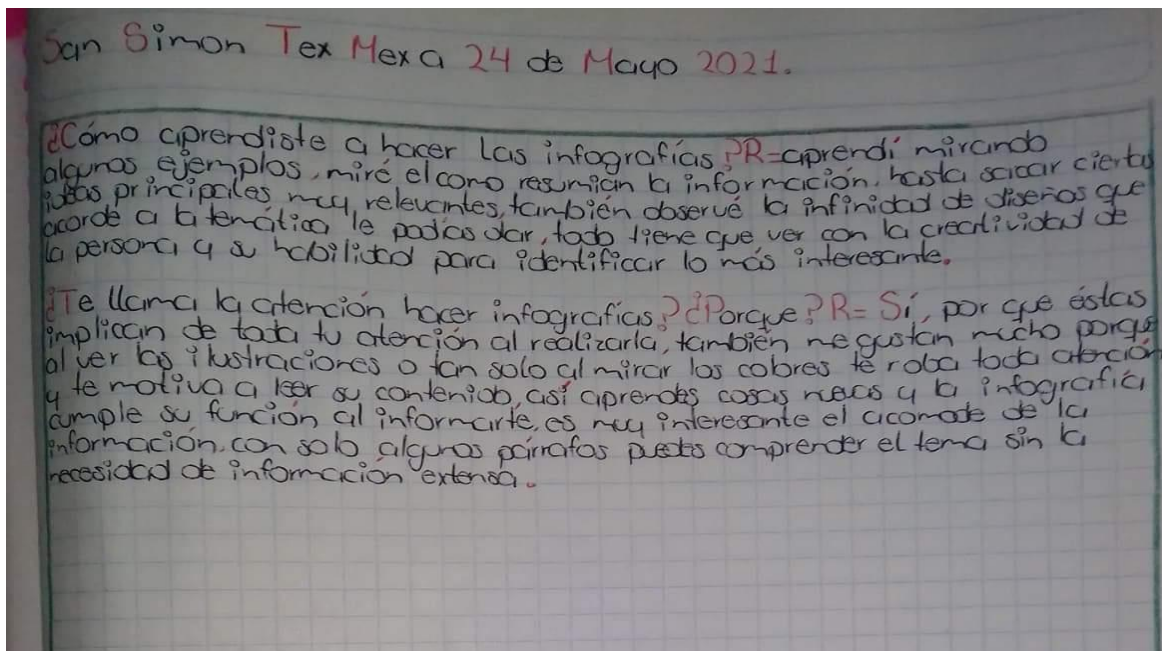 San Simon Tex Mex a 24 de Mayo 2021.
¿Cómo aprendiste a hacer las infografías? R=aprendí mirando
algunos ejemplos, miré el como resumían la información, hasta sacar ciertas
ideas principales muy relevantes, también observé la infinidad de diseños que
acorde a la temática le podías dar, todo tiene que ver con la creatividad de
la persona y su habilidad para identificar lo más interesante.
¿Te llama la atención hacer infografías? ¿Porque? R= Sí, por que éstas
implican de toda tu atención al realizarla, también me gustan mucho porque
al ver las ilustraciones o tan solo al mirar los colores te roba toda atención
y te motiva a leer su contenido, así aprendes cosas nuevas y la infografía
cumple su función al informarte, es muy interesante el acomode de la
información, con solo algunos párrafos puedes comprender el tema sin la
necesidad de información extensa.